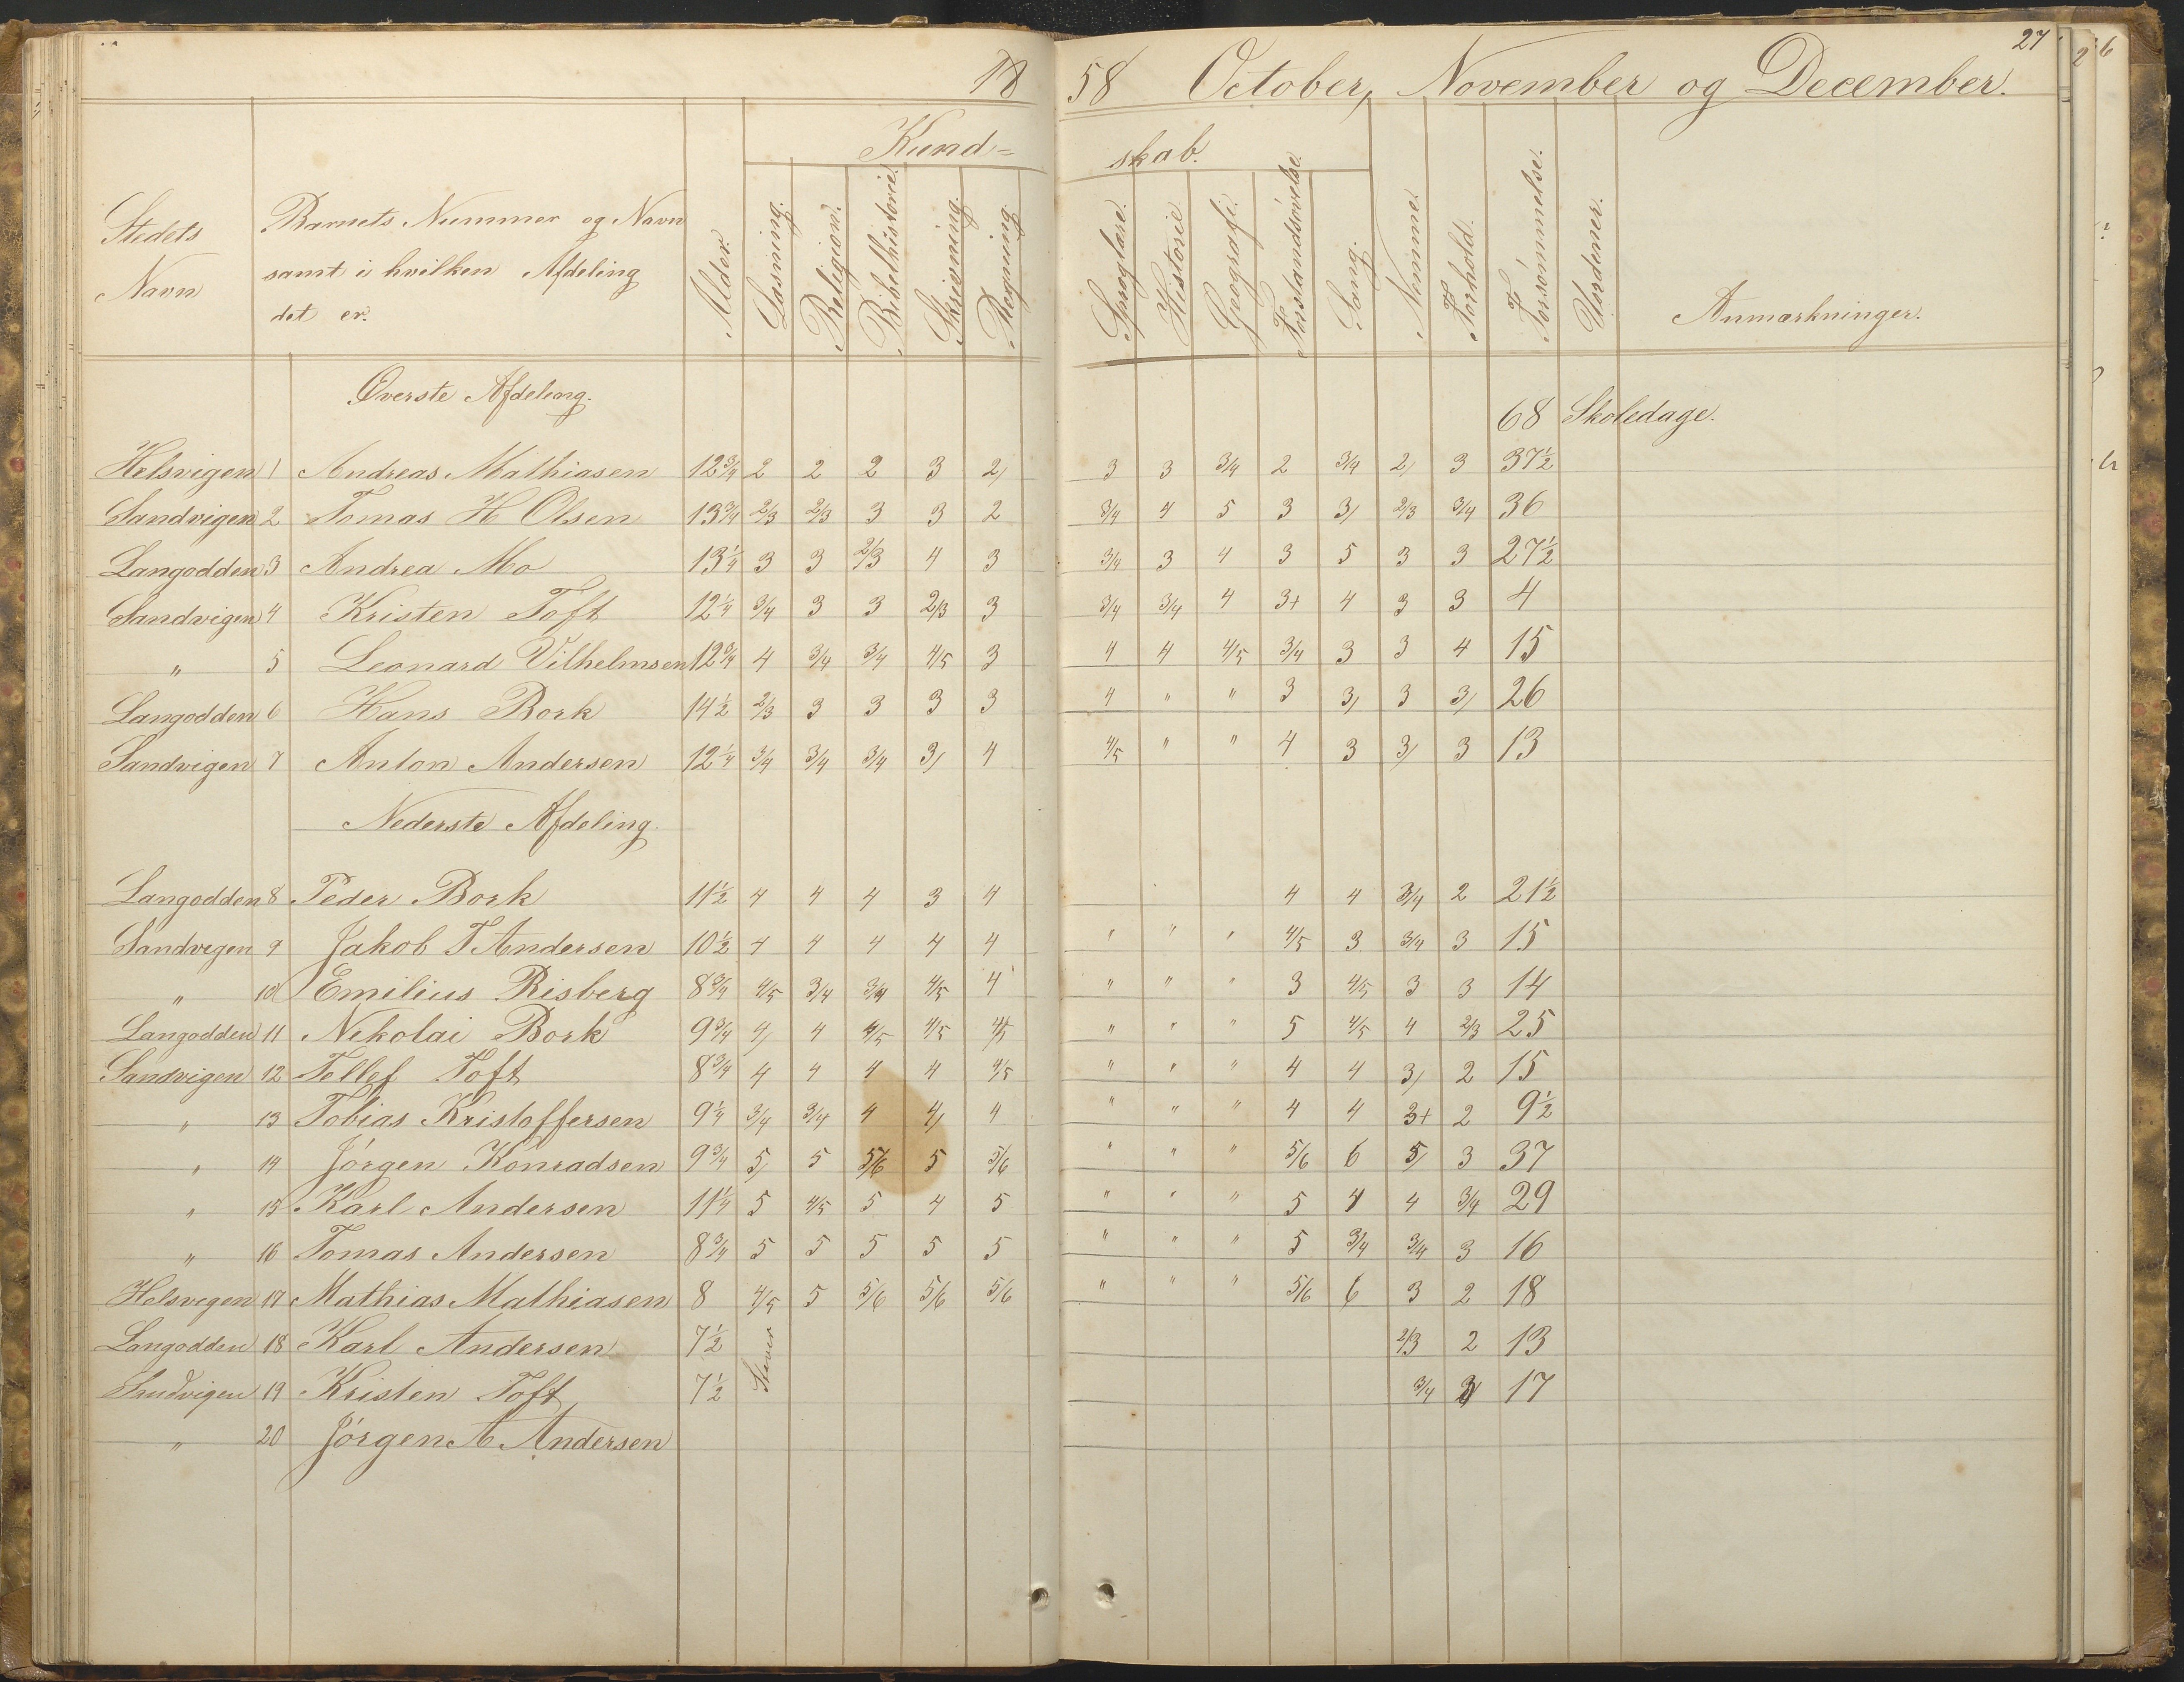 18 58 October, November og December. 27
Kund= skab.
Stedets Navn
Barnets Nummer og Navn
samt i hvilken Afdeling
det er.
Alder.
Læsning.
Religion.
Bibelhistorie.
Skrivning.
Regning.
Sproglære.
Historie.
Geografi.
Forstandsøvelse.
Sang.
Nemme.
Forhold.
Forsømmelse.
Anmærkninger.
Øverste Afdeling.
68 Skoledage.
Helsvigen 1 Andreas Mathiasen 12 3/4 2 2 2 3 2/ 3 3 3/4 2 3/4 2/ 3 37 1/2
Sandvigen 2 Tomas H Olsen 13 3/4 2/3 2/3 3 3 2 3/4 4 5 3 3/ 2/3 3/4 36
Langodden 3 Andrea Mo 13 1/4 3 3 2/3 4 3 3/4 3 4 3 5 3 3 27 1/2
Sandvigen 4 Kristen Toft 12 1/4 3/4 3 3 2/3 3 3/4 3/4 4 3+ 4 3 3 4
" 5 Leonard Vilhelmsen 12 3/4 4 3/4 3/4 4/5 3 4 4 4/5 3/4 3 3 4 15
Langodden 6 Hans Bork 14 1/2 2/3 3 3 3 3 4 " " 3 3/ 3 3/ 26
Sandvigen 7 Anton Andersen 12 1/4 3/4 3/4 3/4 3/ 4 4/5 " " 4 3 3/ 3 13
Nederste Afdeling.
Langodden 8 Peder Bork 11 1/2 4 4 4 3 4 4 4 3/4 2 21 1/2
Sandvigen 9 Jakob T Andersen 10 1/2 4 4 4 4 4 " " " 4/5 3 3/4 3 15
" 10 Emilius Risberg 8 3/4 4/5 3/4 3/4 4/5 4 " " " 3 4/5 3 3 14
Langodden 11 Nikolai Bork 9 3/4 4/ 4 4/5 4/5 4/5 " " " 5 4/5 4 2/3 25
Sandvigen 12 Tellef Toft 8 3/4 4 4 4 4 4/5 " " " 4 4 3/ 2 15
" 13 Tobias Kristoffersen 9 1/4 3/4 3/4 4 4/ 4 " " " 4 4 3+ 2 9 1/2
" 14 Jørgen Konradsen 9 3/4 5/ 5 5/6 5 5/6 " " " 5/6 6 5/ 3 37
" 15 Karl Andersen 11 1/4 5 4/5 5 4 5 " " " 5 4 4 3/4 29
" 16 Tomas Andersen 8 3/4 5 5 5 5 5 " " " 5 3/4 3/4 3 16
Helsvigen 17 Mathias Mathiasen 8 4/5 5 5/6 5/6 5/6 " " " 5/6 6 3 2 18
Langodden 18 Karl Andersen 7 1/2 Staver 2/3 2 13
Sandvigen 19 Kristen Toft 7 1/2 3/4 17
" 20 Jørgen A Andersen